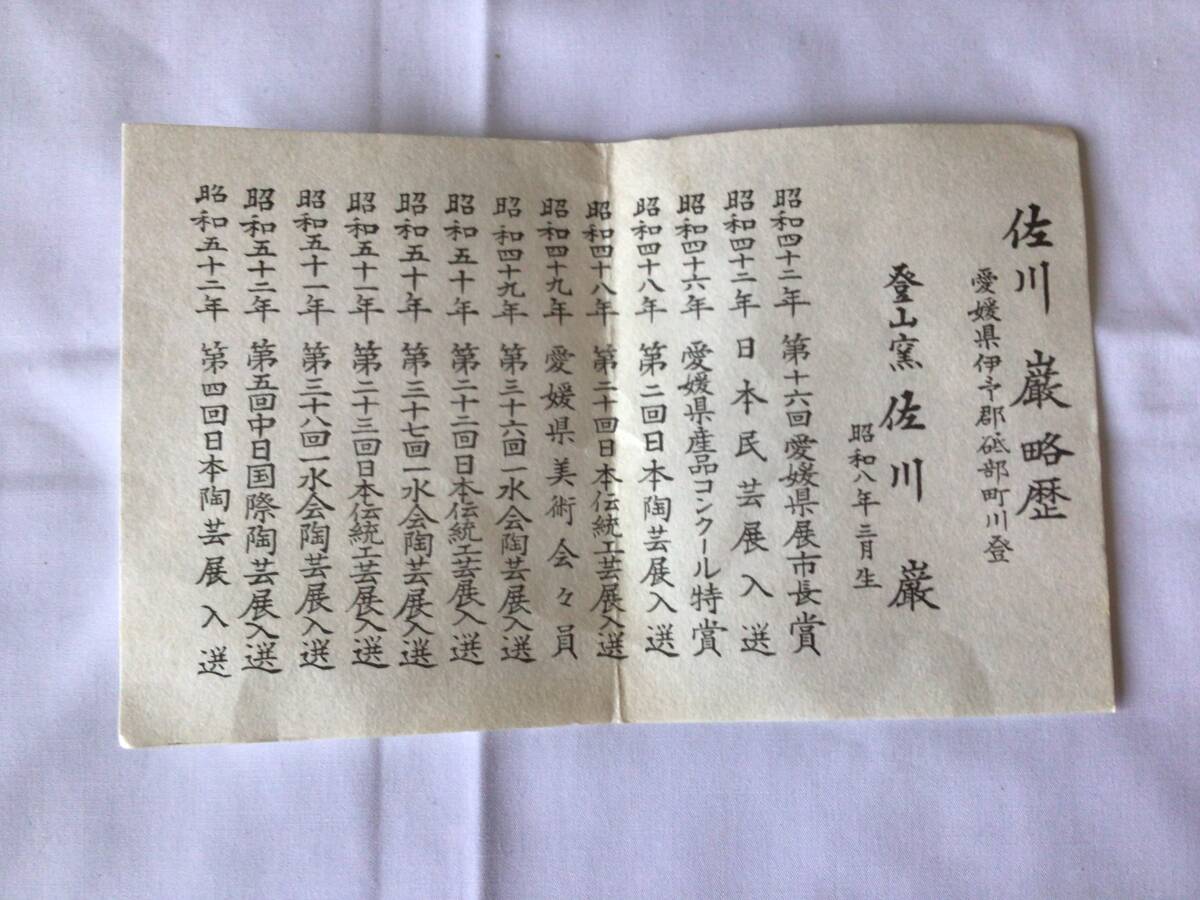 佐川 巌 略歴
愛媛県伊予郡砥部町川登
登山窯 佐川 巌
昭和八年三月生
昭和四十二年 第十六回愛媛県展市長賞
昭和四十二年 日本民芸展入選
昭和四十六年 愛媛県産品コンクール特賞
昭和四十八年 第二回日本陶芸展入選
昭和四十八年 第二十回日本伝統工芸展入選
昭和四十九年 愛媛県美術会々員
昭和四十九年 第三十六回一水会陶芸展入選
昭和五十年 第二十二回日本伝統工芸展入選
昭和五十年 第三十七回一水会陶芸展入選
昭和五十一年 第二十三回日本伝統工芸展入選
昭和五十一年 第三十八回一水会陶芸展入選
昭和五十二年 第五回中日国際陶芸展入選
昭和五十二年 第四回日本陶芸展入選